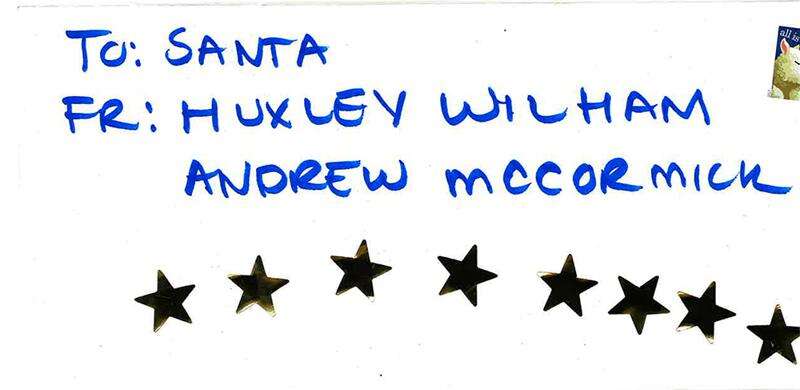 TO: SANTA
FR: HUXLEY WILHAM
ANDREW MCCORMICK
all is